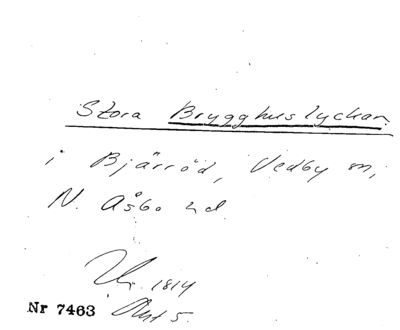 Stora Brygghuslyckan
i Bjärröd, Vedby sn,
N. Åsbo hd
1814
Nr 7463